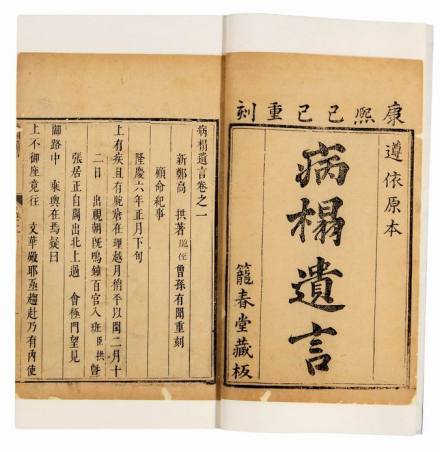 康熙己巳重刻
遵依原本
病榻遺言
籠春堂藏板
病榻遺言卷之一
新鄭高 拱著 胞侄曾孫有聞重刻
顧命紀事
隆慶六年正月下旬
上有疾且有腕瘡在理越月稍平以閏二月十
二日 出視朝既鳴鐘百官入班臣拱暨
張居正自閣出北上過 會極門望見
御路中 乘輿在焉疑曰
上不御座竟往 文華殿耶亟趨赴乃有內使